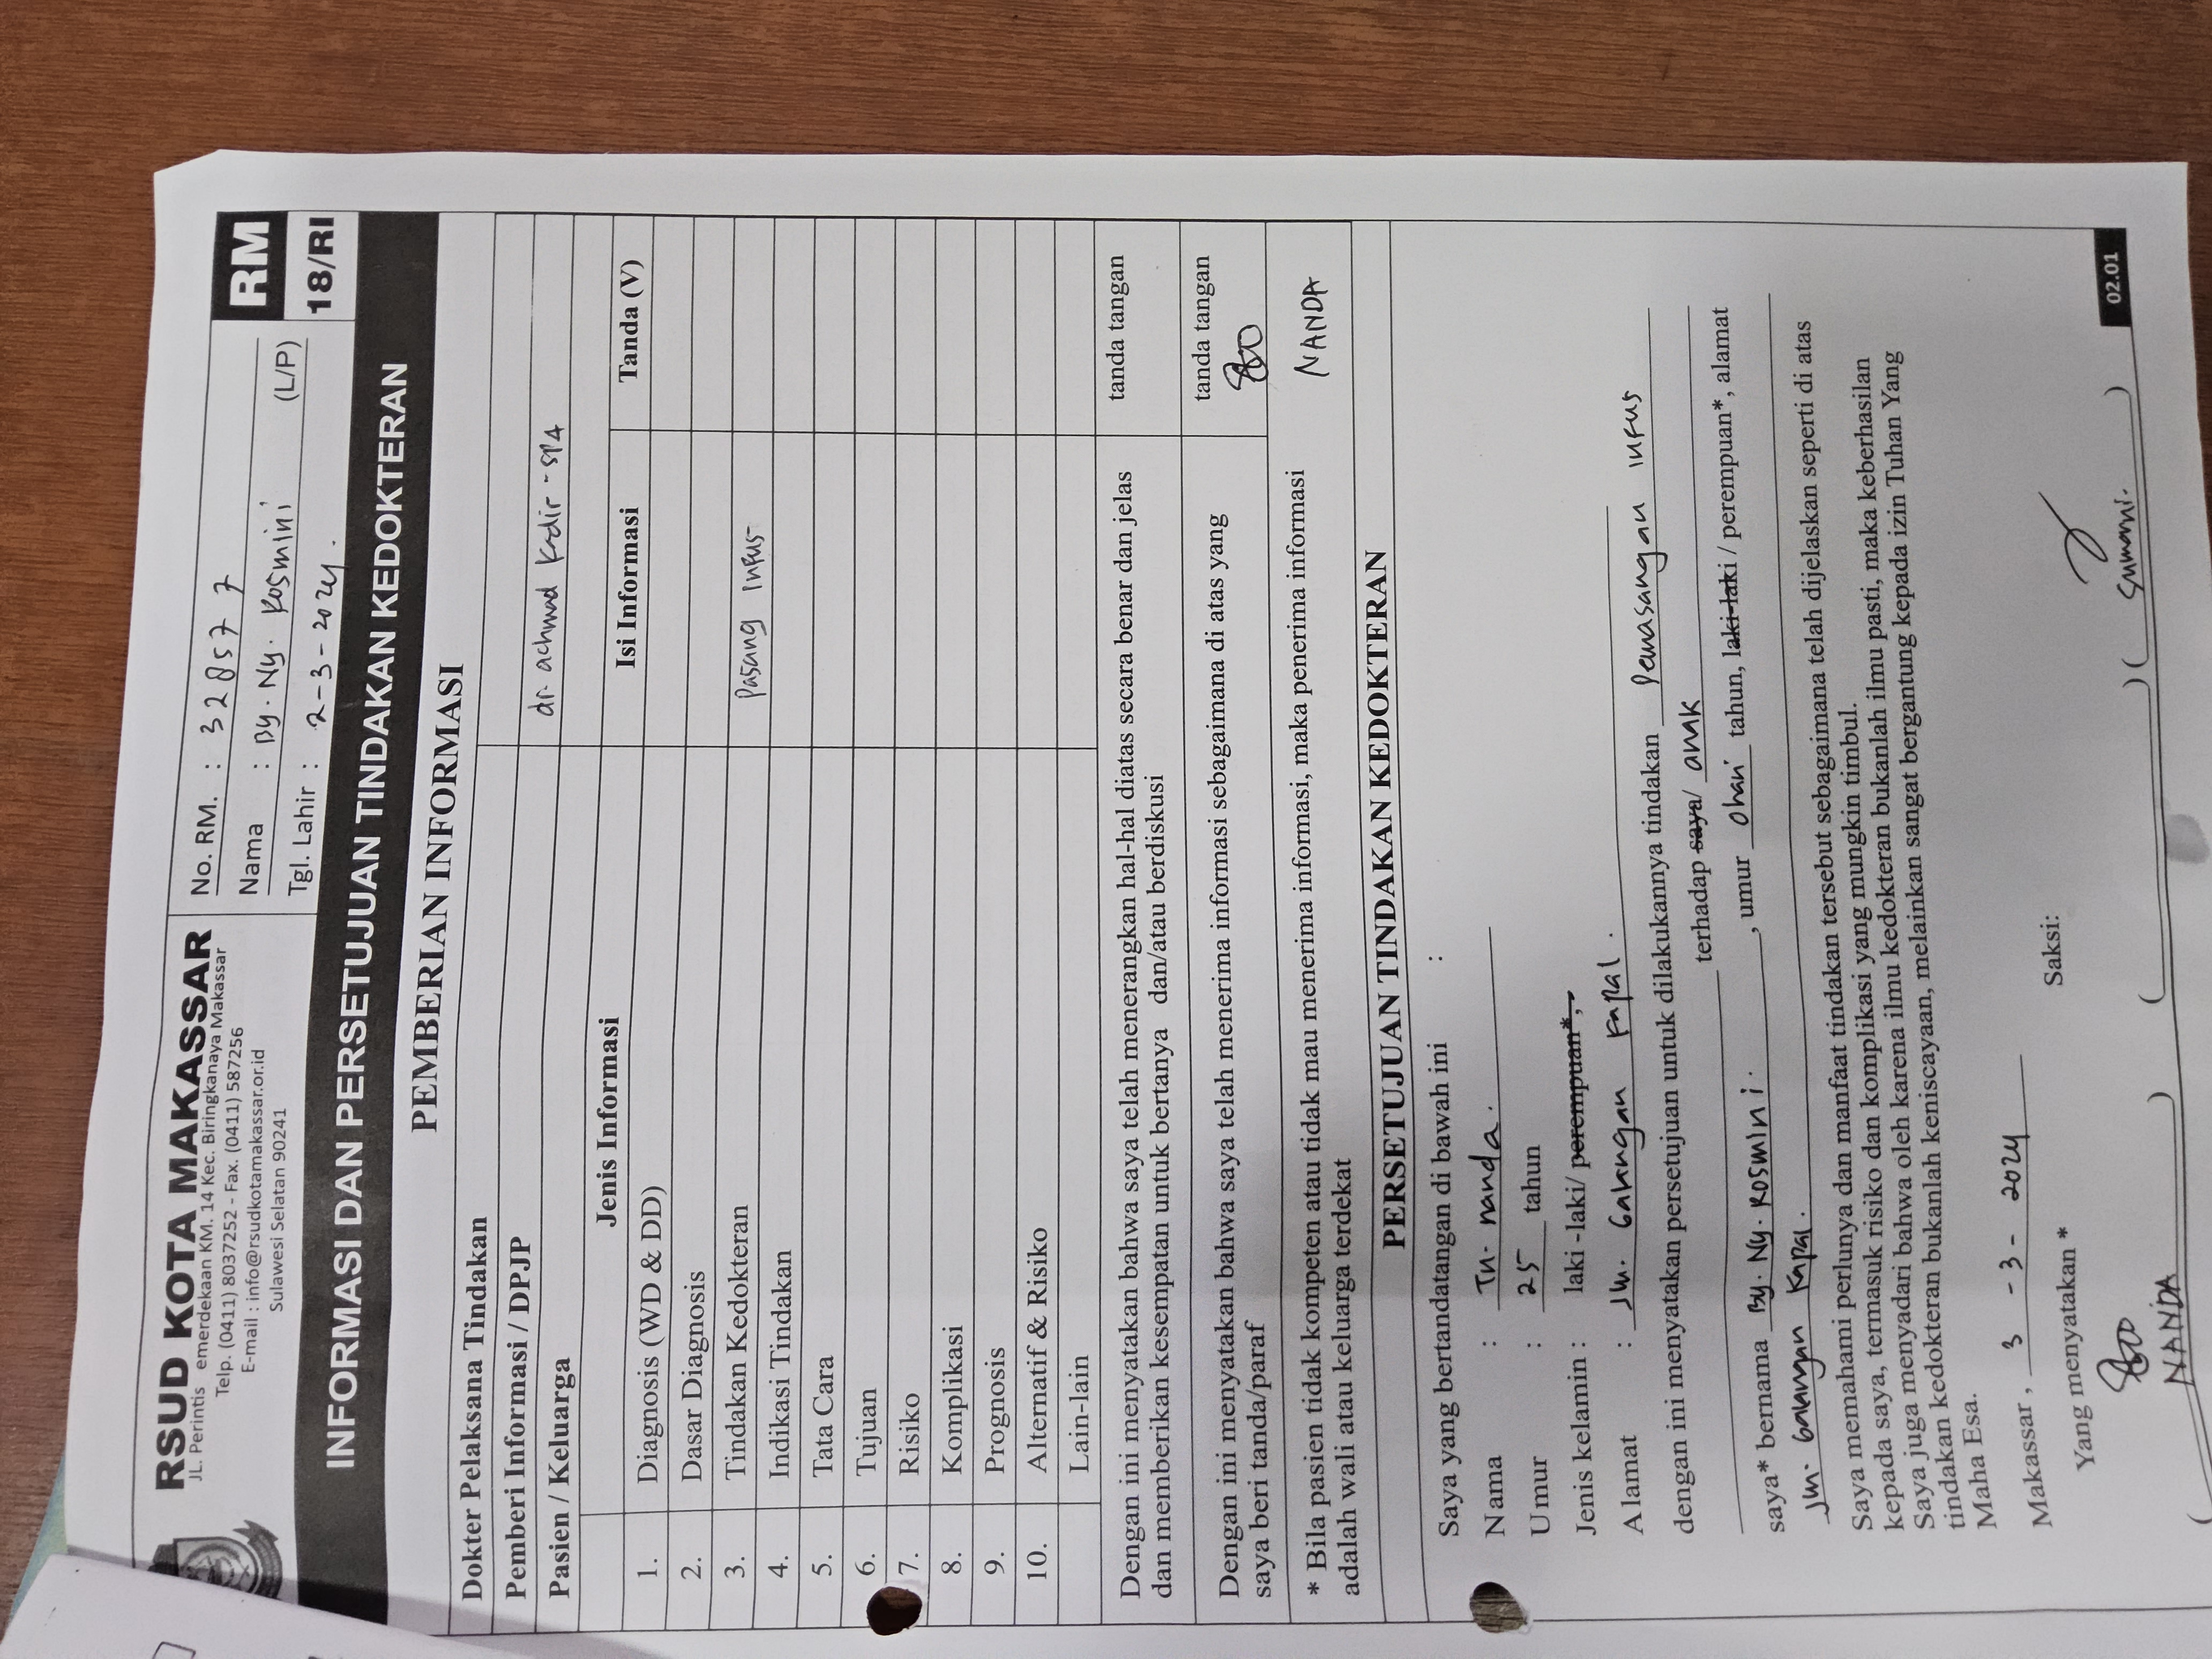 RSUD KOTA MAKASSAR
JL. Perintis emerdekaan KM. 14 Kec. Biringkanaya Makassar
Telp. (0411) 8037252 - Fax. (0411) 587256
E-mail : info@rsudkotamakassar.or.id
Sulawesi Selatan 90241
No. RM. : 328577
Nama : By. Ny. Rosmini (L/P)
Tgl. Lahir : 2-3-2024.
RM
18/RI
INFORMASI DAN PERSETUJUAN TINDAKAN KEDOKTERAN
PEMBERIAN INFORMASI
Dokter Pelaksana Tindakan
Pemberi Informasi / DPJP dr. achmad Kadir - SPA
Pasien / Keluarga
Jenis Informasi Isi Informasi Tanda (V)
1. Diagnosis (WD & DD)
2. Dasar Diagnosis
3. Tindakan Kedokteran Pasang Infus
4. Indikasi Tindakan
5. Tata Cara
6. Tujuan
7. Risiko
8. Komplikasi
9. Prognosis
10. Alternatif & Risiko
Lain-lain
Dengan ini menyatakan bahwa saya telah menerangkan hal-hal diatas secara benar dan jelas tanda tangan
dan memberikan kesempatan untuk bertanya dan/atau berdiskusi
Dengan ini menyatakan bahwa saya telah menerima informasi sebagaimana di atas yang tanda tangan
saya beri tanda/paraf
* Bila pasien tidak kompeten atau tidak mau menerima informasi, maka penerima informasi NANDA
adalah wali atau keluarga terdekat
PERSETUJUAN TINDAKAN KEDOKTERAN
Saya yang bertandatangan di bawah ini :
Nama : Tn. nanda.
Umur : 25 tahun
Jenis kelamin : laki -laki/ perempuan*,
Alamat : Jln. Galangan Kapal.
dengan ini menyatakan persetujuan untuk dilakukannya tindakan Pemasangan infus
terhadap saya/ anak
saya* bernama By. Ny. Rosmini. , umur 0 hari tahun, laki-laki / perempuan*, alamat
Jln. Galangan Kapal.
Saya memahami perlunya dan manfaat tindakan tersebut sebagaimana telah dijelaskan seperti di atas
kepada saya, termasuk risiko dan komplikasi yang mungkin timbul.
Saya juga menyadari bahwa oleh karena ilmu kedokteran bukanlah ilmu pasti, maka keberhasilan
tindakan kedokteran bukanlah keniscayaan, melainkan sangat bergantung kepada izin Tuhan Yang
Maha Esa.
Makassar , 3 -3- 2024
Yang menyatakan * Saksi:
NANDA
Sumarni.
02.01